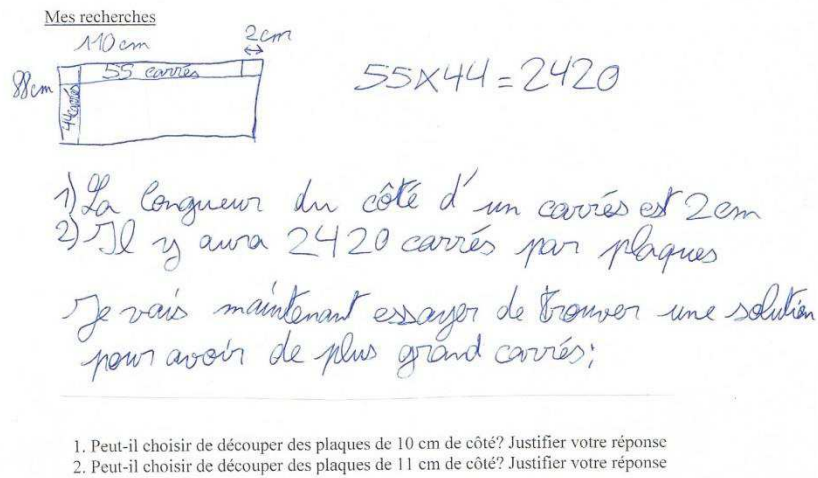 Mes recherches
110 cm
2cm
55 carrés
88cm
44 carrés
55×44=2420
1) La longueur du côté d'un carrés est 2cm
2) Il y aura 2420 carrés par plaques
Je vais maintenant essayer de trouver une solution
pour avoir de plus grand carrés;
1. Peut-il choisir de découper des plaques de 10 cm de côté? Justifier votre réponse
2. Peut-il choisir de découper des plaques de 11 cm de côté? Justifier votre réponse